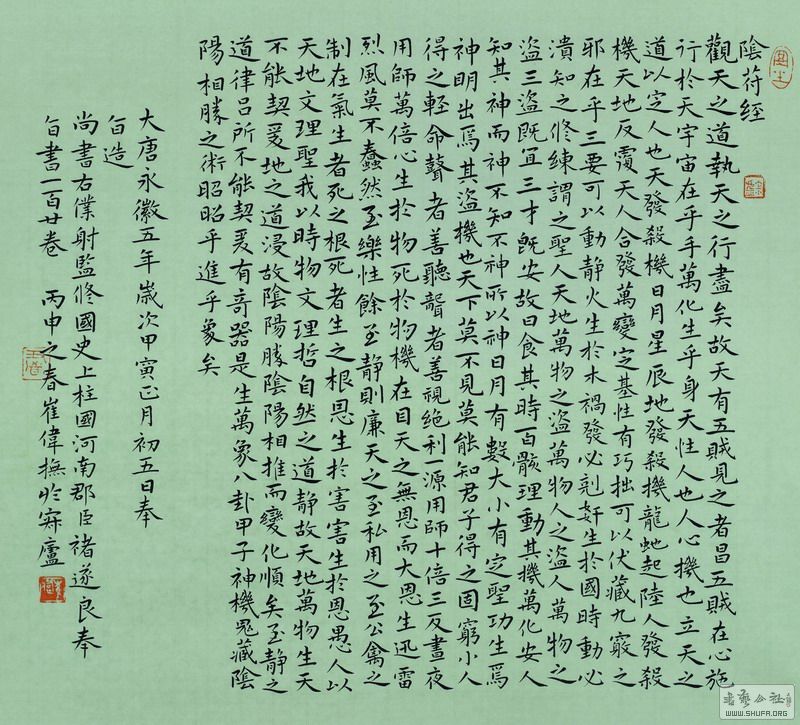 陰符經
觀天之道執天之行盡矣故天有五賊見之者昌五賊在心施
行於天宇宙在乎手萬化生乎身天性人也人心機也立天之
道以定人也天發殺機日月星辰地發殺機龍虵起陸人發殺
機天地反覆天人合發萬變定基性有巧拙可以伏藏九竅之
邪在乎三要可以動静火生於木禍發必剋奸生於國時動必
潰知之修練謂之聖人天地萬物之盗萬物人之盗人萬物之
盗三盗既宜三才既安故曰食其時百骸理動其機萬化安人
知其神而神不知不神所以神日月有數大小有定聖功生焉
神明出焉其盗機也天下莫不見莫能知君子得之固窮小人
得之輕命瞽者善聽聾者善視絶利一源用師十倍三反晝夜
用師萬倍心生於物死於物機在目天之無恩而大恩生迅雷
烈風莫不蠢然至樂性餘至静則廉天之至私用之至公禽之
制在氣生者死之根死者生之根恩生於害害生於恩愚人以
天地文理聖我以時物文理哲自然之道静故天地萬物生天
不能契爰地之道浸故陰陽勝陰陽相推而變化順矣至静之
道律吕所不能契爰有奇器是生萬象八卦甲子神機鬼藏陰
陽相勝之術昭昭乎進乎象矣
大唐永徽五年歲次甲寅正月初五日奉
旨造
尚書右僕射監修國史上柱國河南郡臣褚遂良奉
旨書一百廿卷 丙申之春崔偉撫於寐廬
書藝公社
WWW.SHUFA.ORG